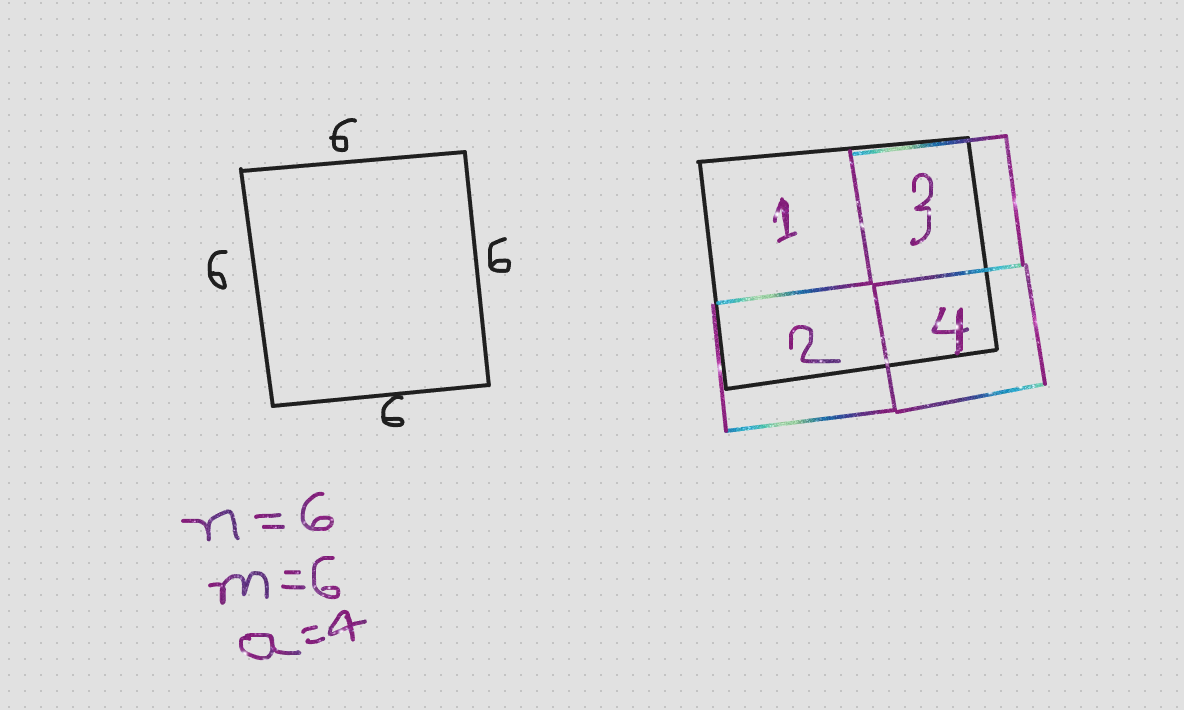 6
6
6
6
1
3
2
4
n=6
m=6
a=4